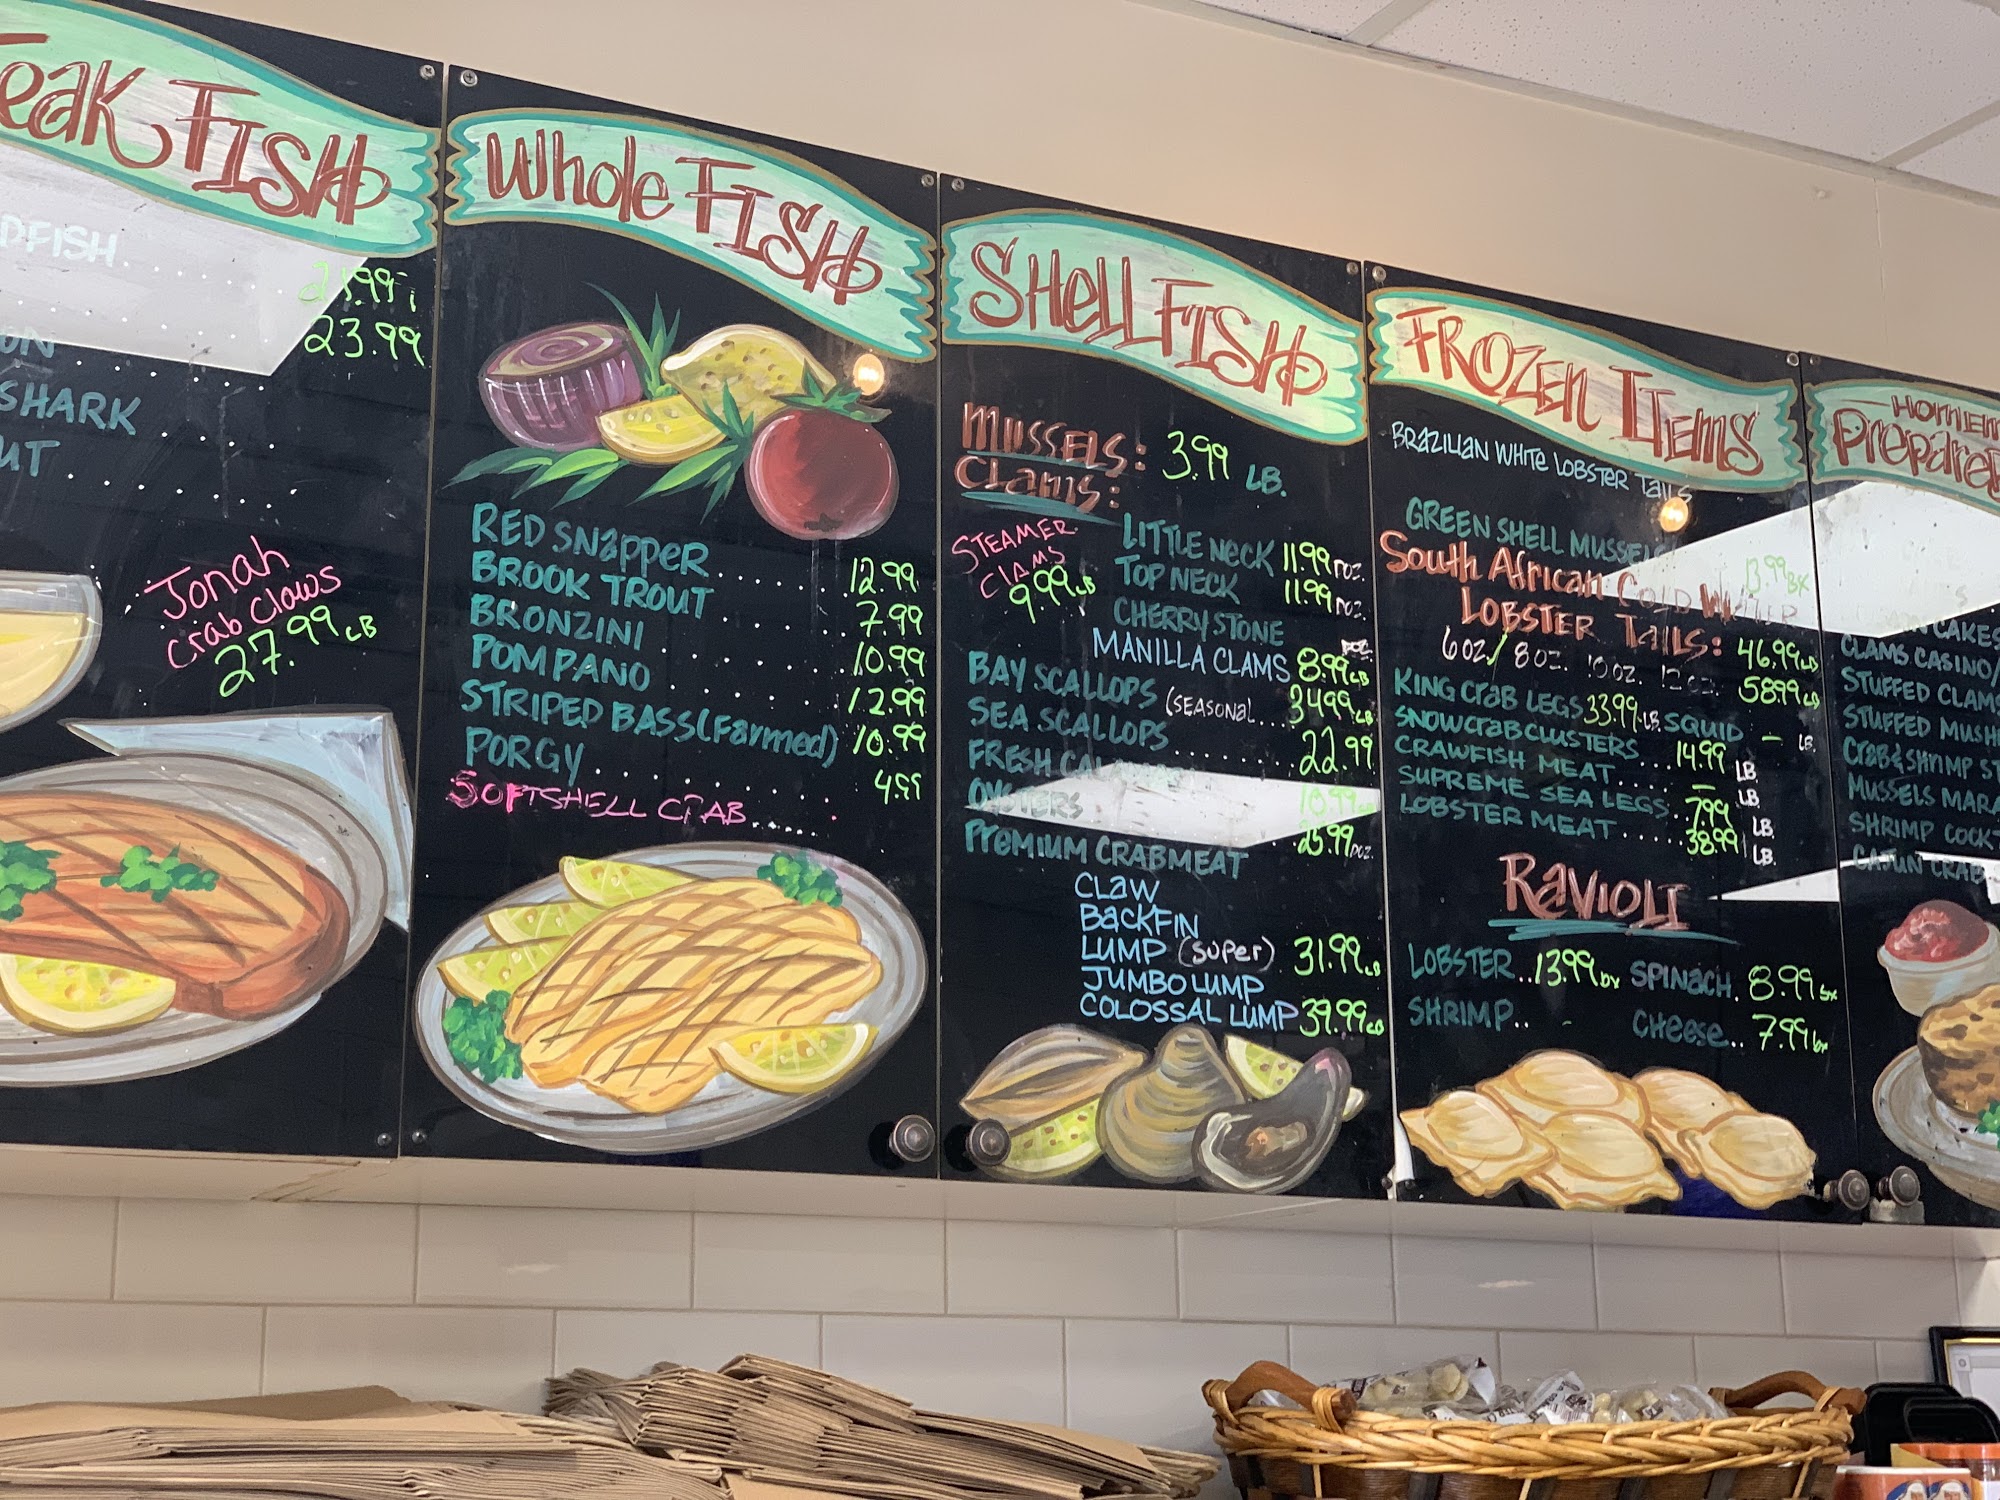 FISH
23.99
SHARK
Jonah
Crab Claws
27.99 LB
Whole FISH
RED SNAPPER...... 12.99
BROOK TROUT...... 7.99
BRONZINI...... 10.99
POMPANO...... 12.99
STRIPED BASS (Farmed) 10.99
PORGY...... 4.99
SOFTSHELL CRAB......
SHELL FISH
MUSSELS: 3.99 LB.
Clams:
STEAMER
CLAMS
9.99 LB
LITTLE NECK 11.99 DOZ.
TOP NECK 11.99 DOZ.
CHERRYSTONE DOZ.
MANILLA CLAMS 8.99 LB
BAY SCALLOPS (SEASONAL... 34.99 LB
SEA SCALLOPS...... 22.99
FRESH
OYSTERS 25.99 DOZ.
PREMIUM CRABMEAT
CLAW
BACKFIN
LUMP (super) 31.99 LB
JUMBO LUMP
COLOSSAL LUMP 39.99 LB
FROZEN ITEMS
BRAZILIAN WHITE LOBSTER Tails
GREEN SHELL MUSSELS 13.99 BX
South African COLD WATER
LOBSTER TAILS: 46.99 LB
6 OZ./ 8 OZ. 10 OZ. 12 OZ. 58.99 LB
KING CRAB LEGS 33.99 LB. SQUID – LB.
SNOWCRAB CLUSTERS 14.99 LB.
CRAWFISH MEAT.... – LB.
SUPREME SEA LEGS. 7.99 LB.
LOBSTER MEAT.... 38.99 LB.
RAVIOLI
LOBSTER.. 13.99 bx SPINACH. 8.99 bx
SHRIMP.. - CHEESE.. 7.99 bx
CAKES
CLAMS CASINO/
STUFFED CLAMS
STUFFED
CRAB & SHRIMP
MUSSELS
SHRIMP
CAJUN CRAB